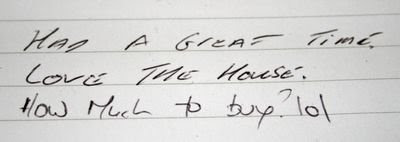 Had A Great Time.
Love The House.
How Much to buy? lol